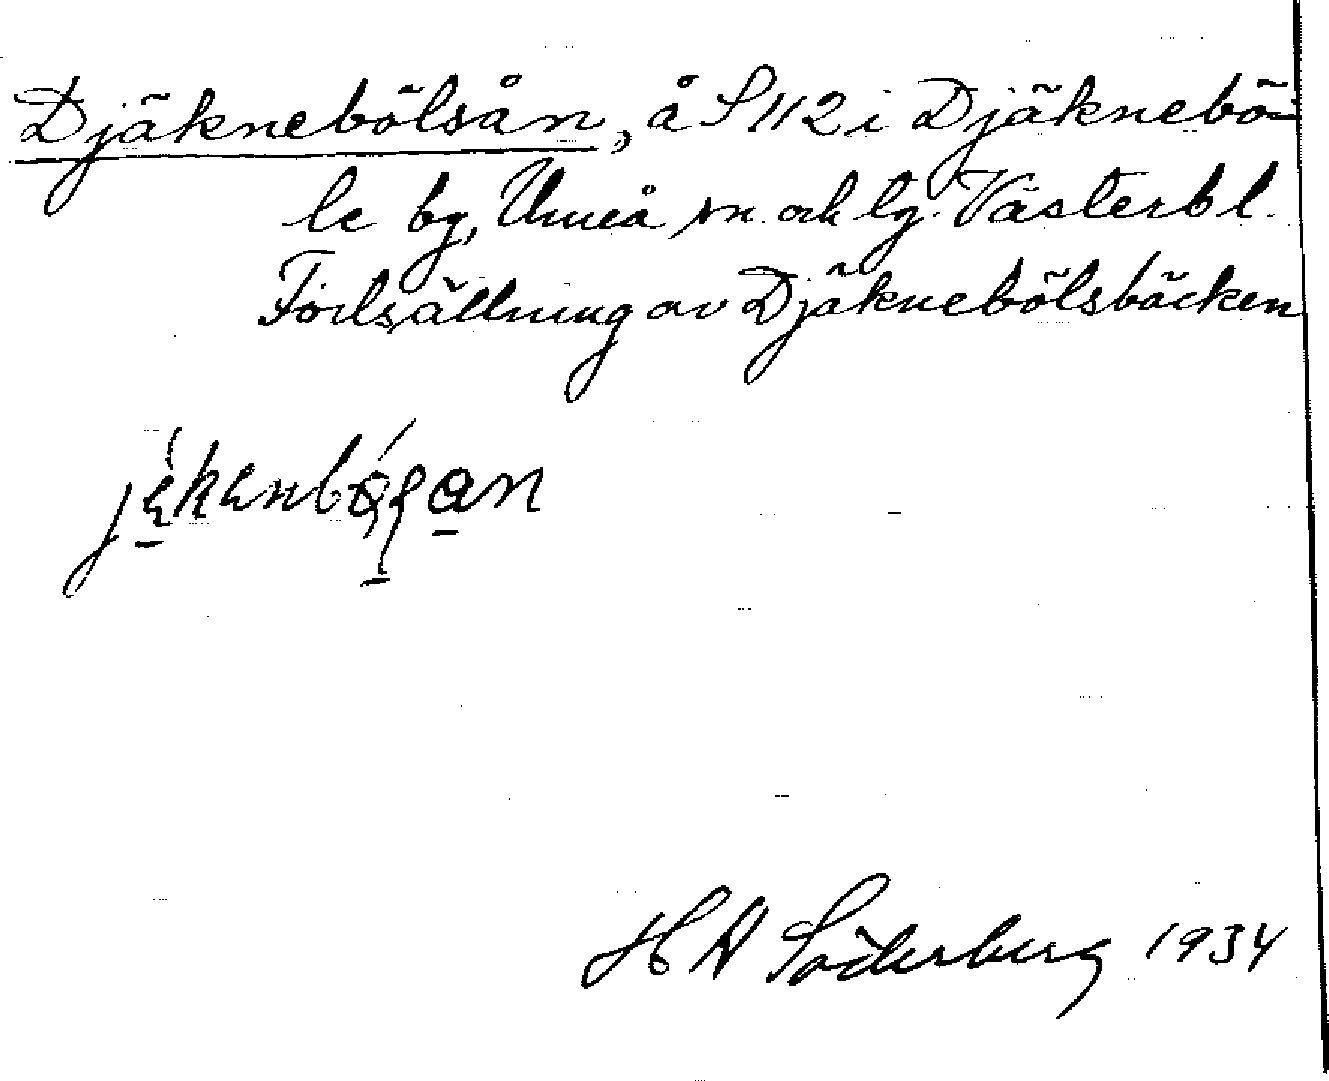 Djäknebölsån, å S112 i Djäknebö-
le by, Umeå sn. och lg. Västerb l.
Fortsättning av Djäknebölsbäcken
H Söderberg 1934